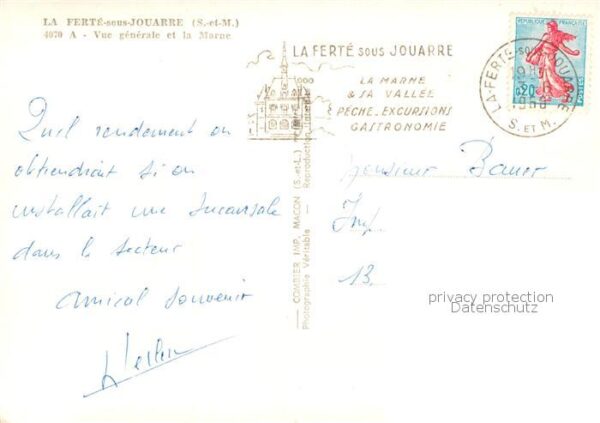 LA FERTÉ-sous-JOUARRE (S.-et-M.)
4070 A - Vue générale et la Marne
LA FERTÉ SOUS JOUARRE
LA MARNE
& SA VALLEE
PÊCHE-EXCURSIONS
GASTRONOMIE
REPUBLIQUE FRANÇAISE
0,20
POSTES
LA-FERTE-SOUS-JOUARRE
S. ET M.
Quel rendement on
obtiendrait si on
installait une succursale
dans le secteur
amical souvenir
— COMBIER IMP. MACON (S.-et-L.) —
Photographie Véritable - Reproduction
Monsieur Bauer
Imp.
13.
privacy protection
Datenschutz